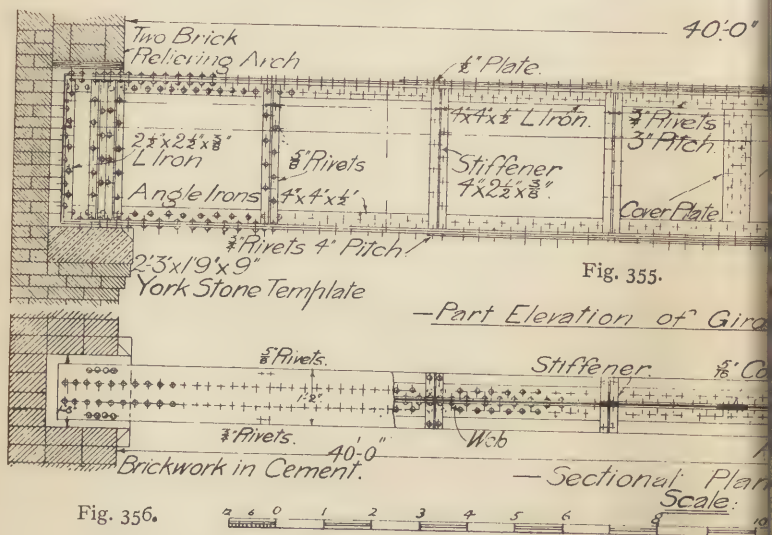 40'·0"
Two Brick
Relieving Arch
½" Plate.
2½"×2½"×⅜"
L Iron
4"×4"×½" L Iron.
¾" Rivets
3" Pitch.
⅝" Rivets
Stiffener
4"×2½"×⅜".
Angle Irons
4"×4"×½"
Cover Plate
¾" Rivets 4" Pitch
2'·3"×1'9"×9"
York Stone Template
Fig. 355.
—Part Elevation of Gird
⅝" Rivets.
Stiffener
5/16" Co
1'-2"
¾" Rivets.
Web
40'·0"
Brickwork in Cement.
—Sectional Plan
Scale:
Fig. 356.
12 6 0 1 2 3 4 5 6 8 10